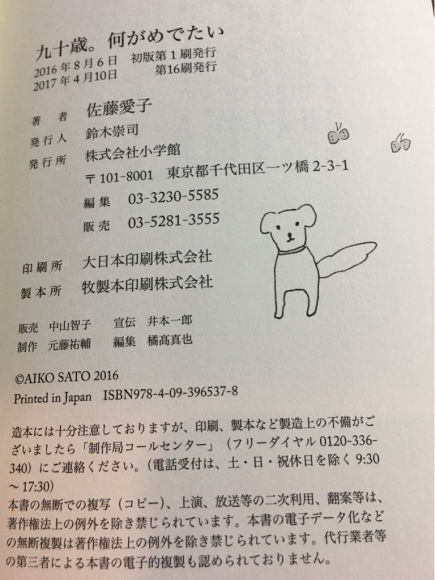 九十歳。何がめでたい
2016年8月6日　初版第1刷発行
2017年4月10日　第16刷発行
著　者　佐藤愛子
発行人　鈴木崇司
発行所　株式会社小学館
〒101-8001　東京都千代田区一ツ橋2-3-1
編集　03-3230-5585
販売　03-5281-3555
印刷所　大日本印刷株式会社
製本所　牧製本印刷株式会社
販売　中山智子　宣伝　井本一郎
制作　元藤祐輔　編集　橘髙真也
©AIKO SATO 2016
Printed in Japan　ISBN978-4-09-396537-8
造本には十分注意しておりますが、印刷、製本など製造上の不備がご
ざいましたら「制作局コールセンター」（フリーダイヤル0120-336-
340）にご連絡ください。（電話受付は、土・日・祝休日を除く9:30
～17:30）
本書の無断での複写（コピー）、上演、放送等の二次利用、翻案等は、
著作権法上の例外を除き禁じられています。本書の電子データ化など
の無断複製は著作権法上の例外を除き禁じられています。代行業者等
の第三者による本書の電子的複製も認められておりません。